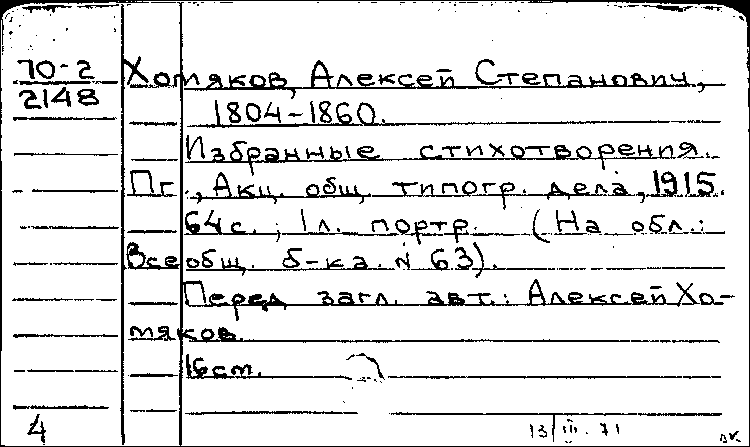 70-2 Хомяков, Алексей Степанович,
2148
1804-1860.
Избранные стихотворения.
Пг., Акц. общ. типогр. дела, 1915.
64 с.; 1 л. портр. (На обл.:
Всеобщ. б-ка. № 63).
Перед загл. авт.: Алексей Хо-
мяков.
16 cm.
4
13/III-71
вк